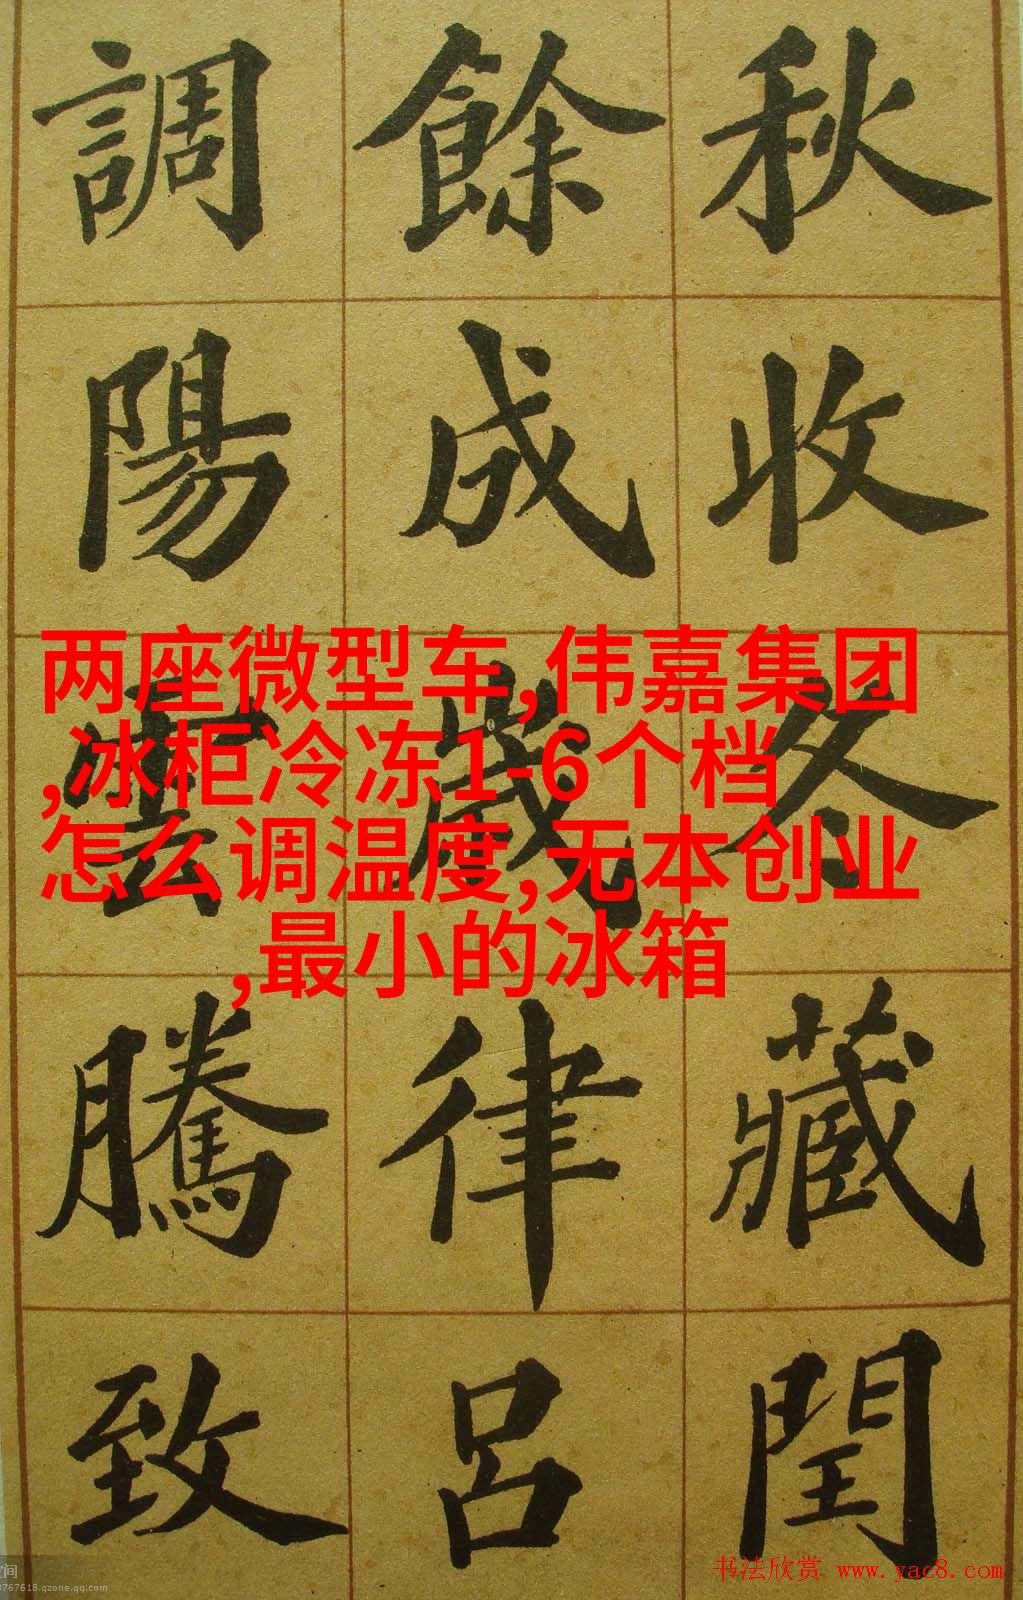 秋收冬藏閏
餘成歲律呂
調陽雲騰致
两座微型车,伟嘉集团
,冰柜冷冻1-6个档
怎么调温度,无本创业
,最小的冰箱
书法欣赏 www.yac8.com
空间
3767618.qzone.qq.com